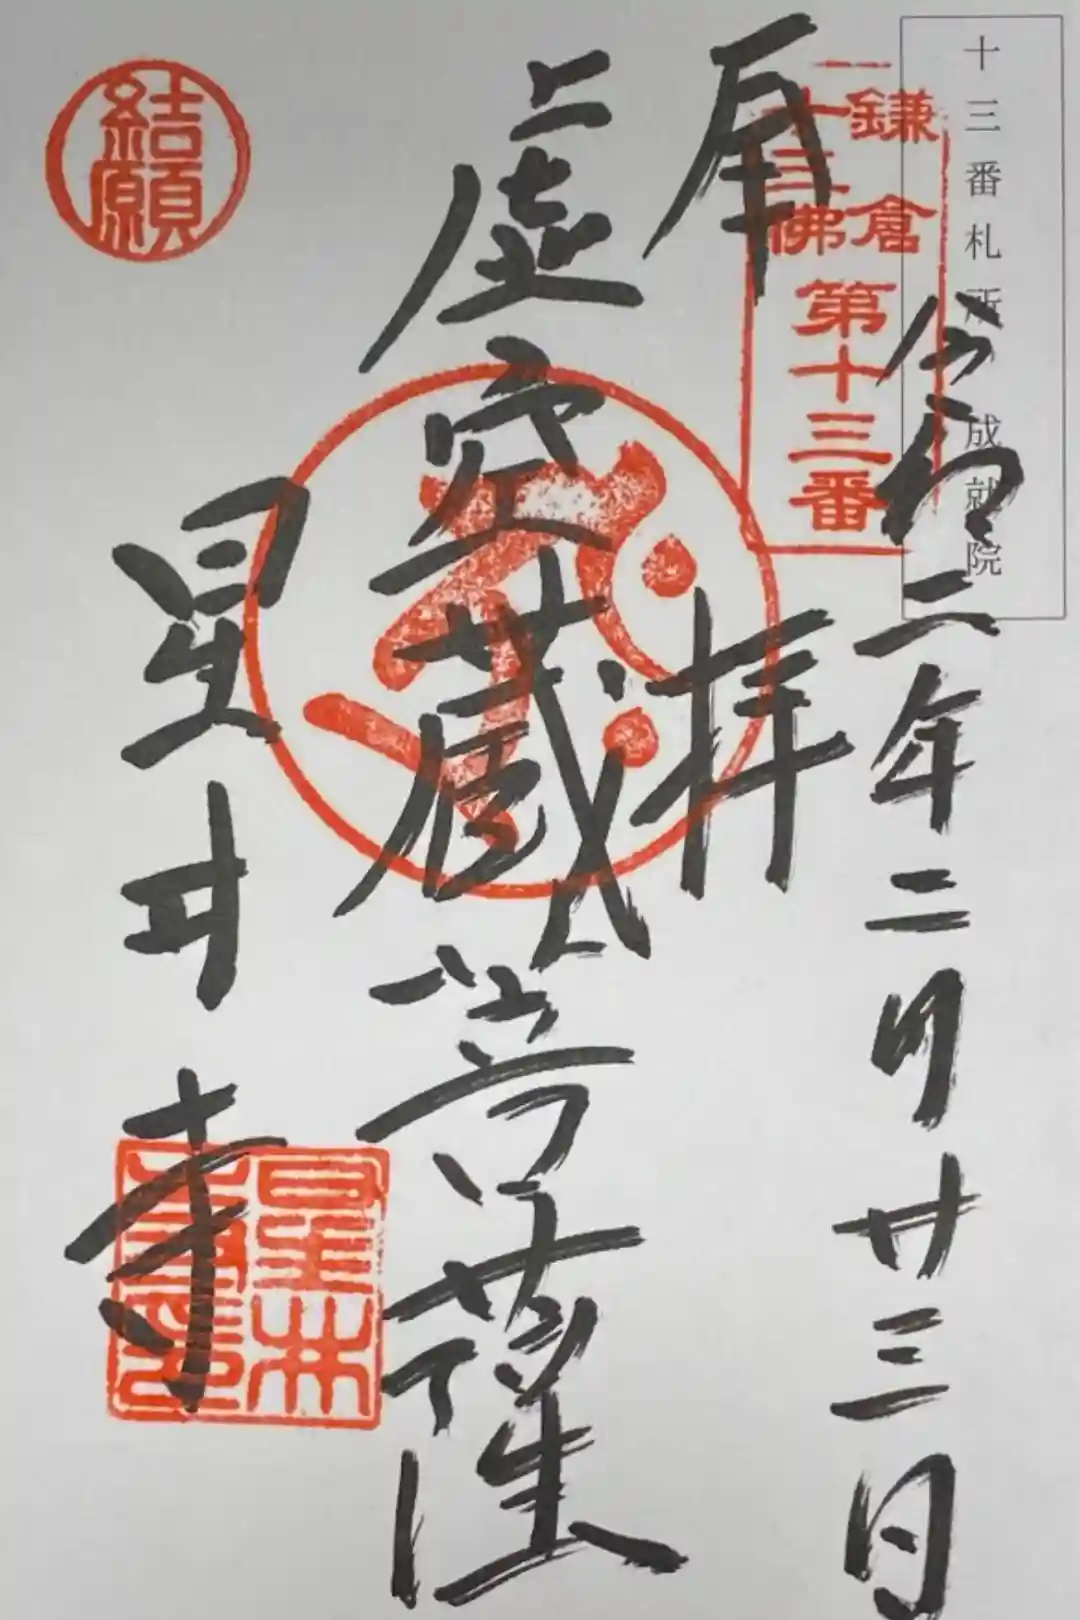 十三番札所 成就院
鎌倉
十三佛
第十三番
令和二年二月廿三日
奉拝
虚空蔵菩薩
結願
星井寺